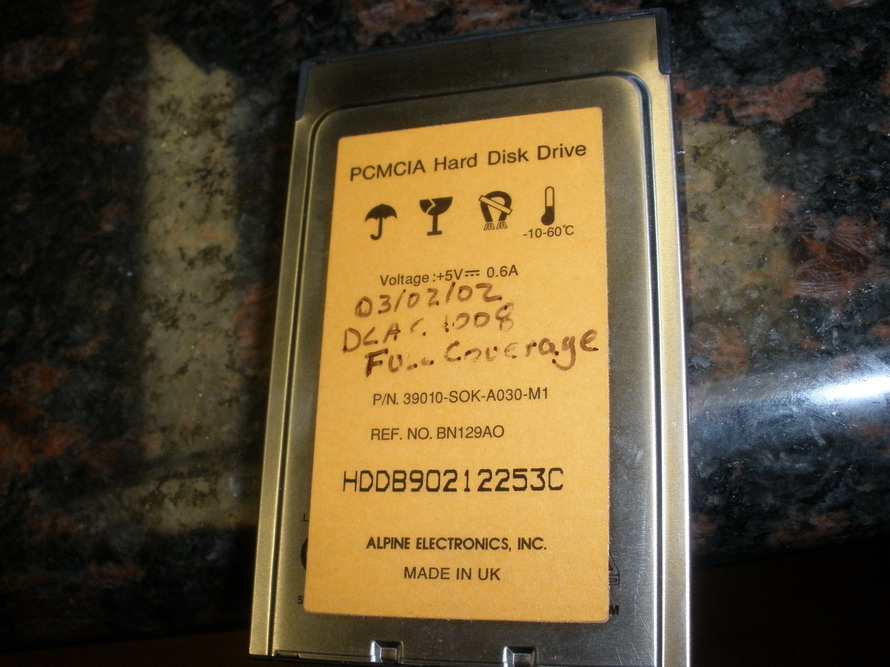 PCMCIA Hard Disk Drive
-10-60℃
Voltage:+5V⎓ 0.6A
03/02/02
1008
Full Coverage
P/N. 39010-SOK-A030-M1
REF. NO. BN129AO
HDDB90212253C
ALPINE ELECTRONICS, INC.
MADE IN UK